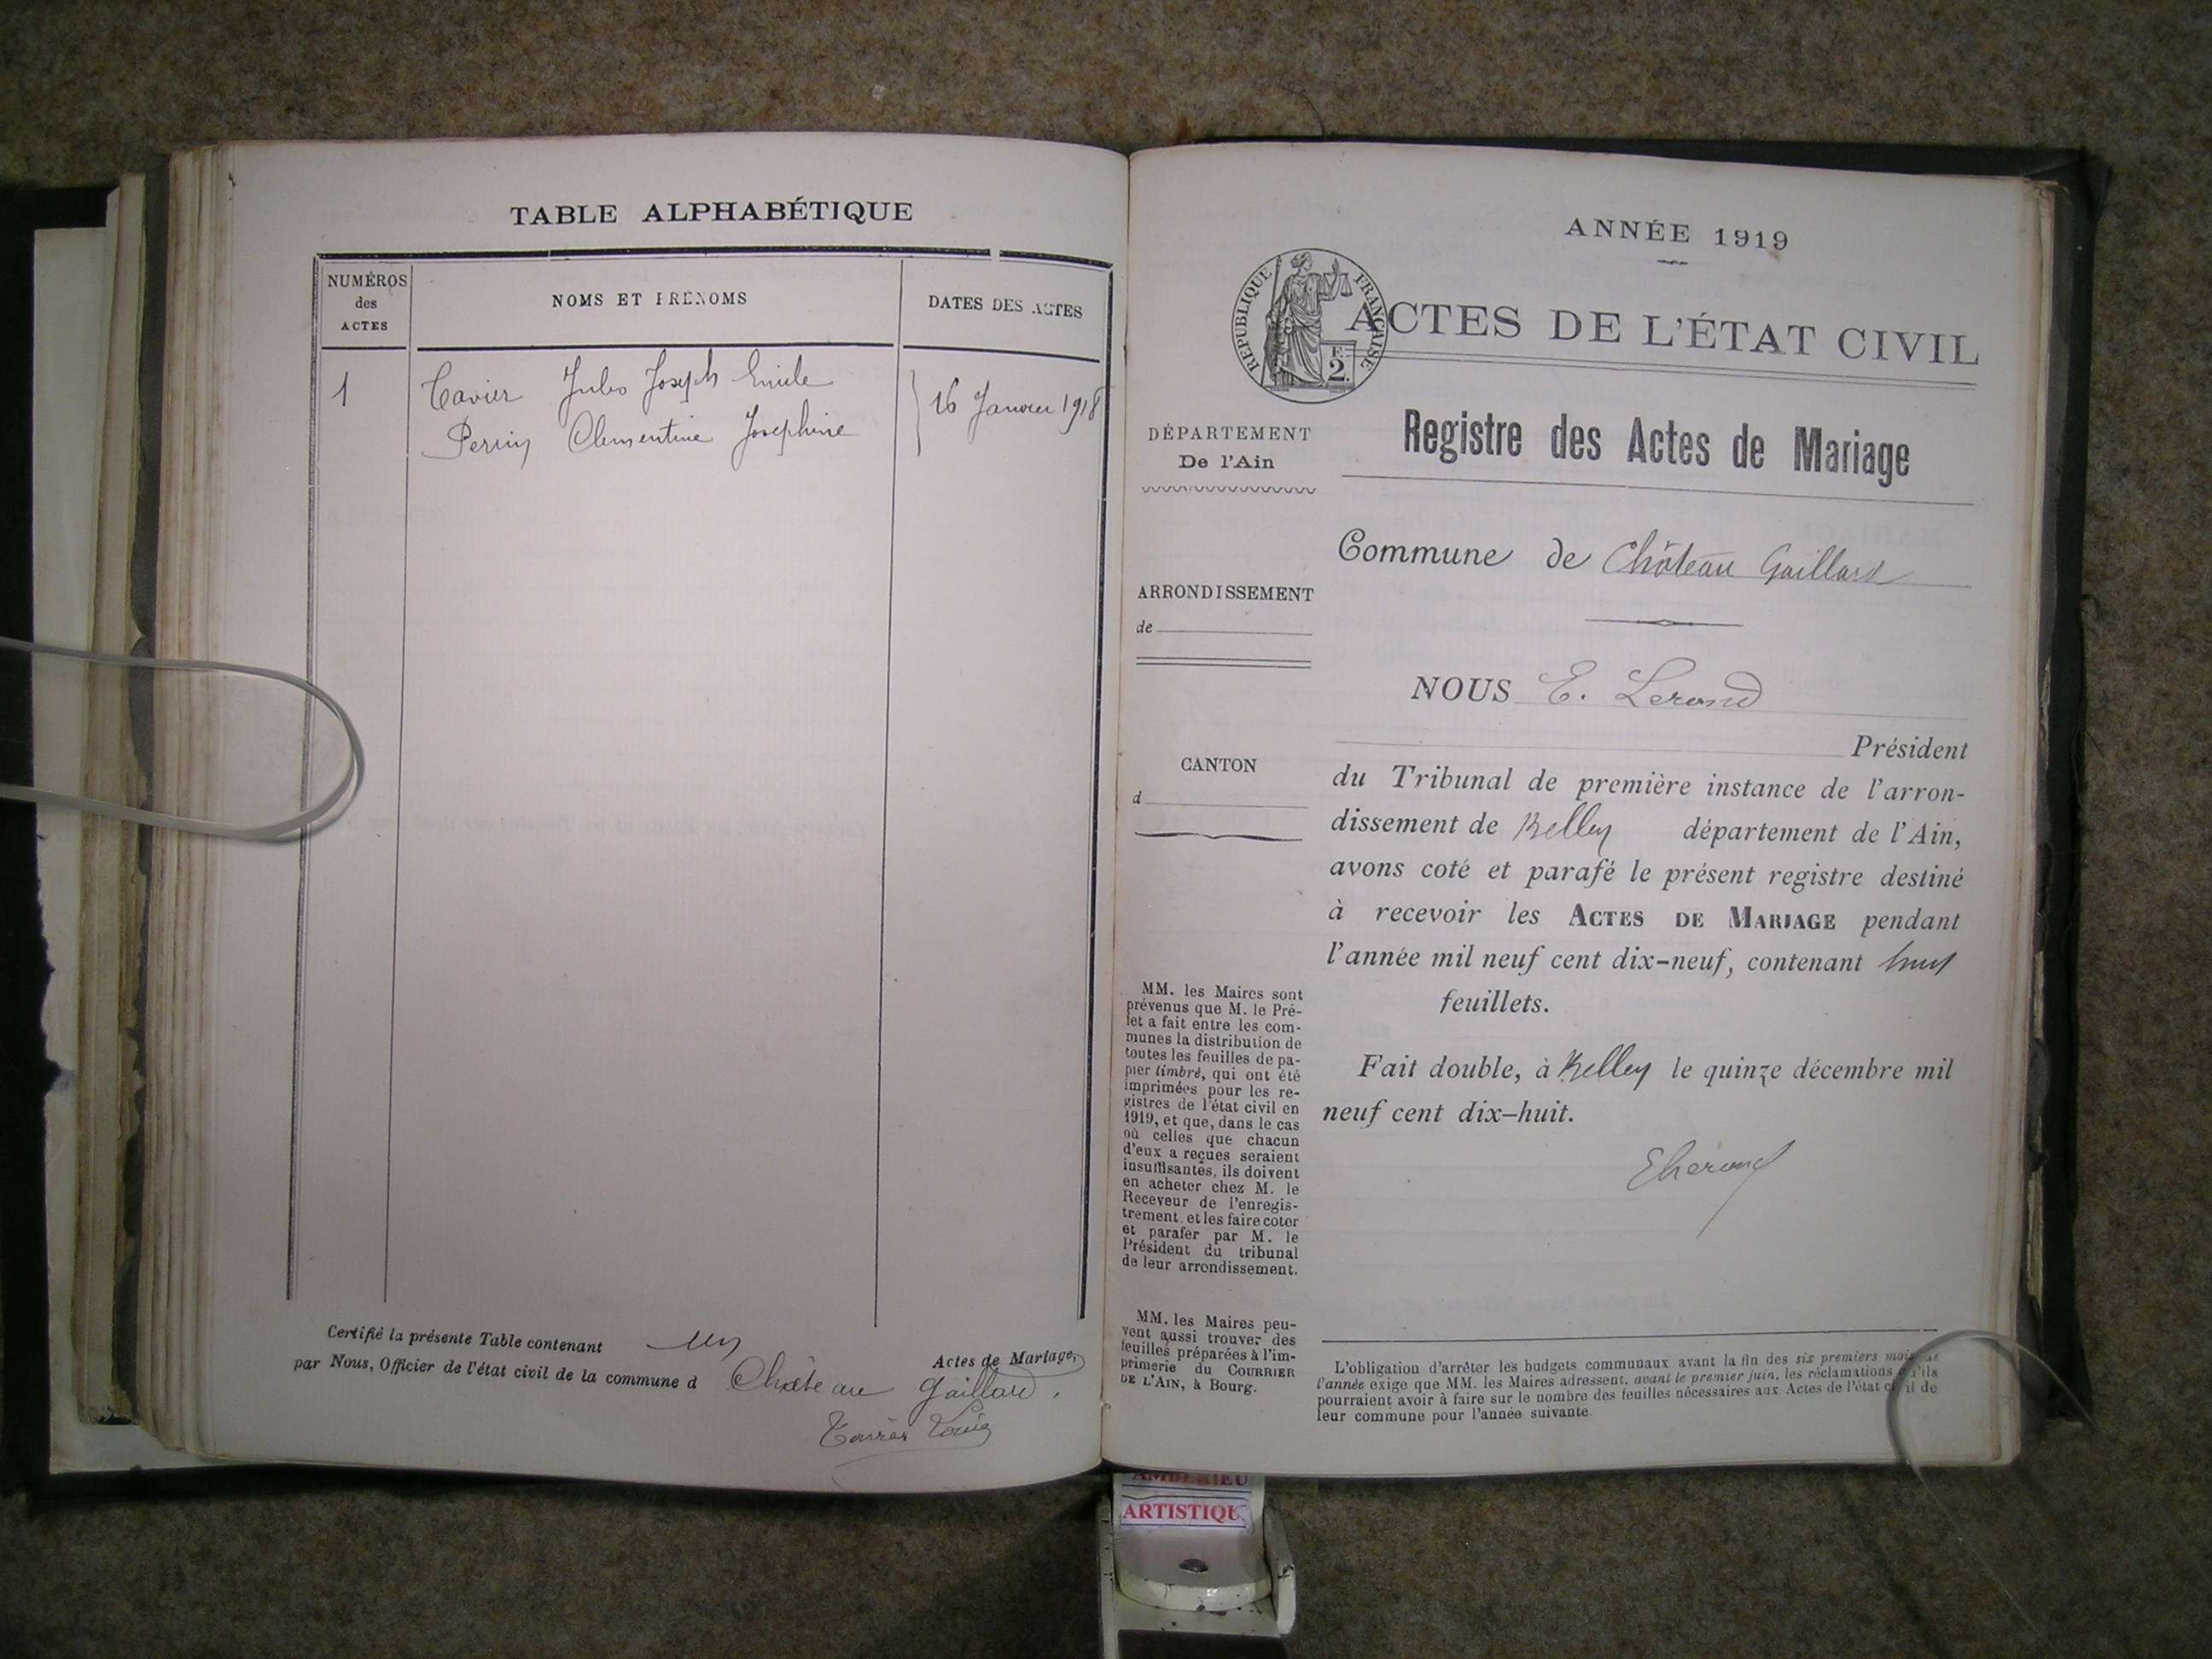 TABLE ALPHABÉTIQUE
NUMÉROS
des
ACTES
NOMS ET PRÉNOMS
DATES DES ACTES
1
Tavier Jules Joseph Emile
Perrin Clementine Josephine
16 Janvier 1918
Certifié la présente Table contenant un Actes de Mariage,
par Nous, Officier de l'état civil de la commune d Château Gaillard.
Tavier Louis
ANNÉE 1919
RÉPUBLIQUE FRANÇAISE
F.
2.
ACTES DE L'ÉTAT CIVIL
Registre des Actes de Mariage
DÉPARTEMENT
De l'Ain
Commune de Château Gaillard
ARRONDISSEMENT
de
CANTON
d
NOUS E. Lerond
Président
du Tribunal de première instance de l'arron-
dissement de Belley département de l'Ain,
avons coté et parafé le présent registre destiné
à recevoir les ACTES DE MARIAGE pendant
l'année mil neuf cent dix-neuf, contenant huit
feuillets.
Fait double, à Belley le quinze décembre mil
neuf cent dix-huit.
MM. les Maires sont
prévenus que M. le Pré-
fet a fait entre les com-
munes la distribution de
toutes les feuilles de pa-
pier timbré, qui ont été
imprimées pour les re-
gistres de l'état civil en
1919, et que, dans le cas
où celles que chacun
d'eux a reçues seraient
insuffisantes, ils doivent
en acheter chez M. le
Receveur de l'enregis-
trement et les faire coter
et parafer par M. le
Président du tribunal
de leur arrondissement.
MM. les Maires peu-
vent aussi trouver des
feuilles préparées à l'im-
primerie du COURRIER
DE L'AIN, à Bourg.
L'obligation d'arrêter les budgets communaux avant la fin des six premiers mois de
l'année exige que MM. les Maires adressent, avant le premier juin, les réclamations qu'ils
pourraient avoir à faire sur le nombre des feuilles nécessaires aux Actes de l'état civil de
leur commune pour l'année suivante.
AMBERIEU
ARTISTIQU